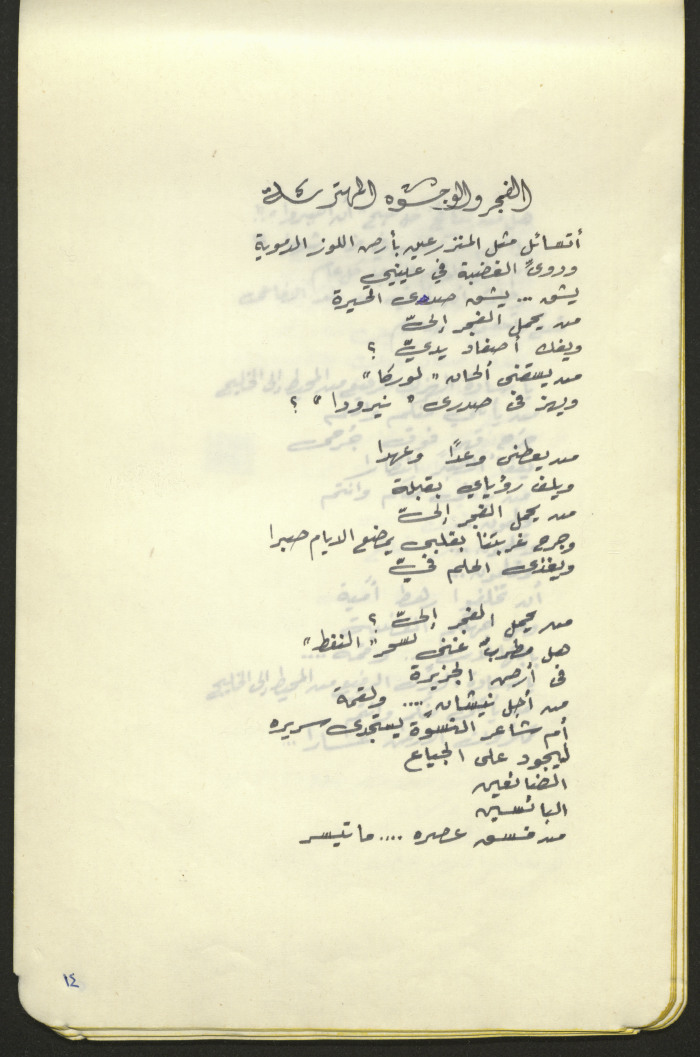 الفجر والوجوه المهترئة
أتسائل مثل المنزرعين بأرض اللوز الدموية
ودويُّ الغضبة في عينيي
يشق ... يشق صدى الحيرة
من يحمل الفجر إليّ
ويفك أصفاد يديّ ؟
من يسقني ألحان "لوركا"
ويهز في صدري " نيرودا " ؟
من يعطني وعدًا وعهدا
ويلف رؤياي بقبلة
من يحمل الفجر إليّ
وجرح غربتنا بقلبي يمضغ الايام صبرا
ويغذى الحلم فيّ
من يحمل الفجر إليّ ؟
هل مطربٌ غنى لسحر "النفط"
في أرض الجزيرة
من أجل نيشانٍ .... ولقمة
أم شاعر النسوة يستجدى سريره
ليجود على الجياع
الضائعين
البائسين
من فسق عصره .... ما تيسر
١٤